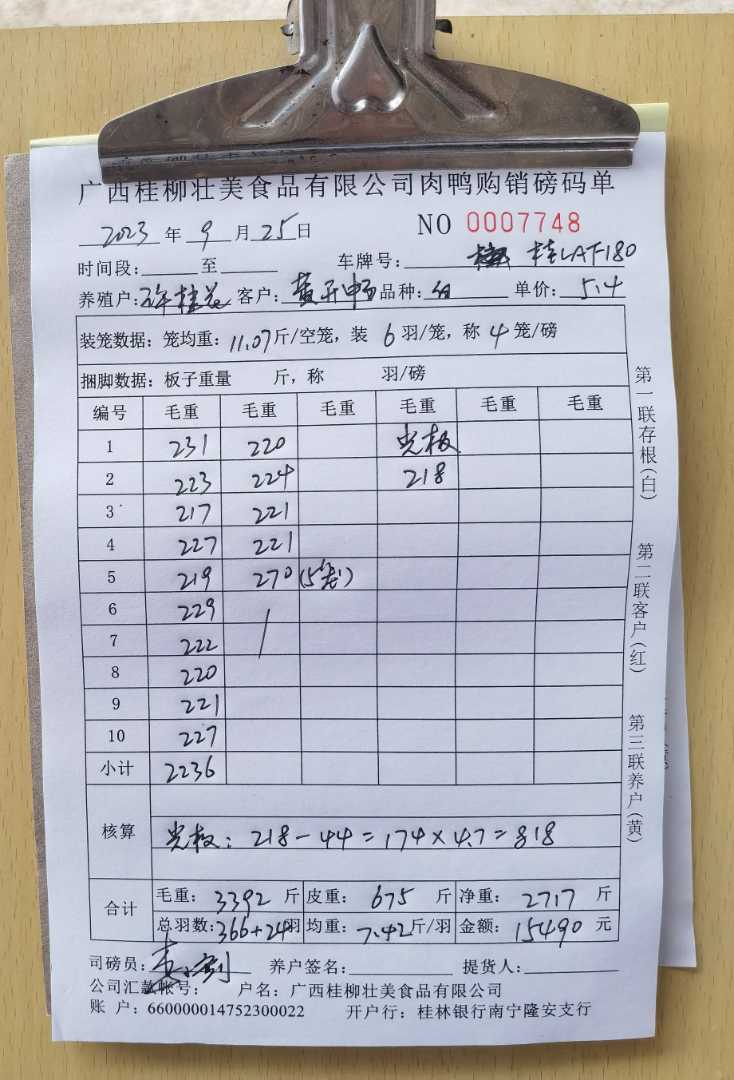 广西桂柳壮美食品有限公司肉鸭购销磅码单
2023 年 9 月 25 日 NO 0007748
时间段: 至 车牌号: 桂LAF180
养殖户: 许桂花 客户: 黄开畅 品种: 白 单价: 5.4
装笼数据: 笼均重: 11.07 斤/空笼, 装 6 羽/笼, 称 4 笼/磅
捆脚数据: 板子重量 斤, 称 羽/磅
编号 毛重 毛重 毛重 毛重 毛重 毛重
1 231 220 光板
2 223 224 218
3 217 221
4 227 221
5 219 270 (5笼)
6 229 /
7 222
8 220
9 221
10 227
小计 2236
核算 光板: 218-44=174×4.7=818
合计 毛重: 3392 斤 皮重: 675 斤 净重: 2717 斤
总羽数: 366+24羽 均重: 7.42斤/羽 金额: 15490 元
司磅员: 养户签名: 提货人:
公司汇款帐号: 户名: 广西桂柳壮美食品有限公司
账 户: 660000014752300022 开户行: 桂林银行南宁隆安支行
第一联存根(白)
第二联客户(红)
第三联养户(黄)